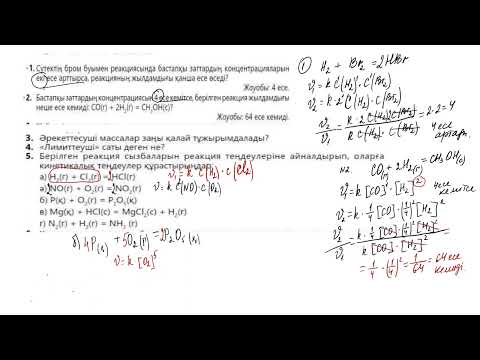 1. Сутектің бром буымен реакциясында бастапқы заттардың концентрацияларын
екі есе арттырса, реакцияның жылдамдығы қанша есе өседі?
Жауобы: 4 есе.
2. Бастапқы заттардың концентрациясын 4 есе кемітсе, берілген реакция жылдамдығы
неше есе кемиді: CO(г) + 2H₂(г) = CH₃OH(с)?
Жауобы: 64 есе кемиді.
3. Әрекеттесуші массалар заңы қалай тұжырымдалады?
4. «Лимиттеуші» саты деген не?
5. Берілген реакция сызбаларын реакция теңдеулеріне айналдырып, оларға
кинетикалық теңдеулер құрастырыңдар:
а) H₂(г) + Cl₂(г) = 2HCl(г) v₁ = k C(H₂) · c(Cl₂)
ә) 2NO(г) + O₂(г) = 2NO₂(г) v = k C(NO) · c(O₂)
б) P(қ) + O₂(г) = P₂O₅(қ)
в) Mg(қ) + HCl(с) = MgCl₂(с) + H₂(г)
г) N₂(г) + H₂(г) = NH₃ (г)
б) 4P(қ) + 5O₂(г) = 2P₂O₅(қ)
v = k [O₂]⁵
① H₂ + Br₂ = 2HBr
v₁ = k C(H₂) · C(Br₂)
v₂ = k · 2 C(H₂) · 2 C(Br₂)
= 2 · 2 = 4
4 есе
артады
№2. CO(г) + 2H₂(г) = CH₃OH(с)
v₁ = k [CO] · [H₂]² 4 есе
кемітсе
v₂ = k · 1/4 [CO] · (1/4)² [H₂]²
v₂/v₁ = k · 1/4 [CO] · (1/4)² [H₂]² / k [CO] · [H₂]² =
= 1/4 · (1/4)² = 1/64 = 64 есе
кемиді